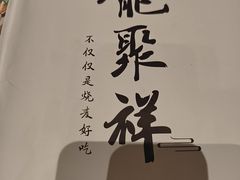 龍聚祥
不仅仅是烧麦好吃